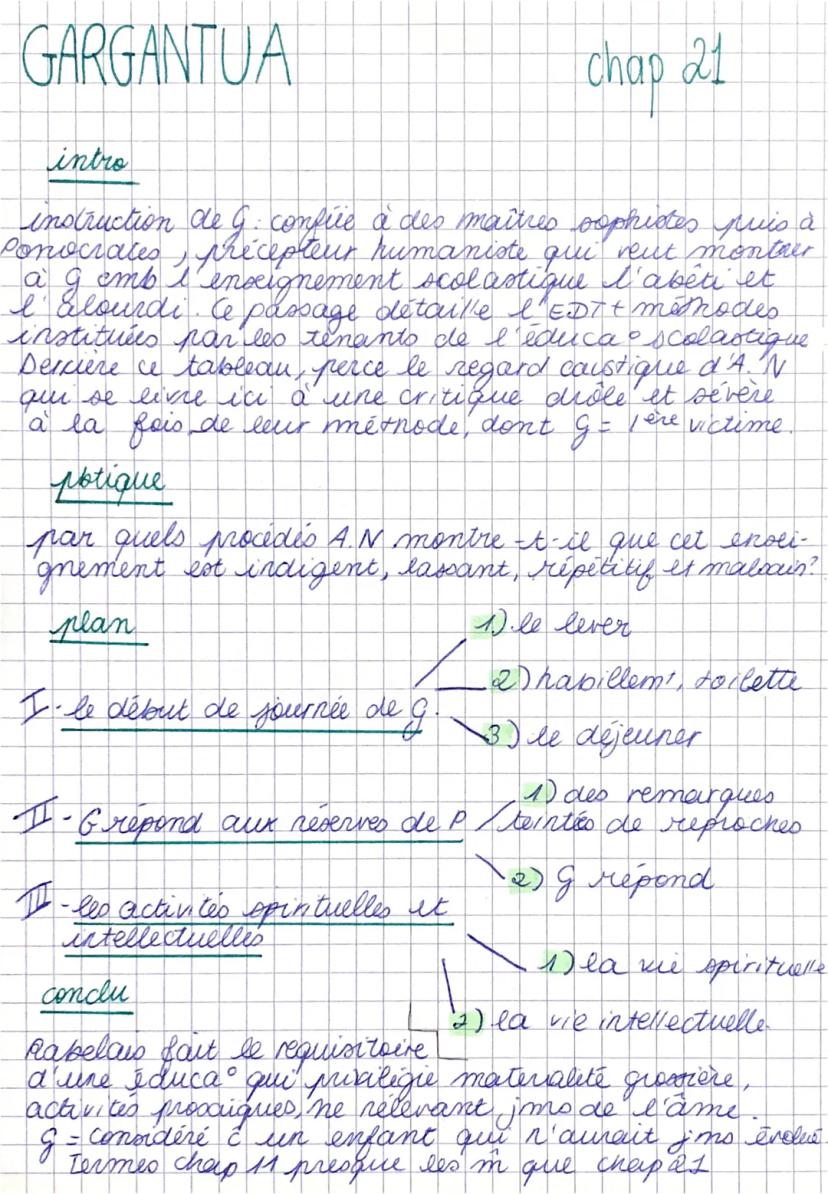 GARGANTUA chap 21
intro
instruction de G : confiée à des maîtres sophistes puis à
Ponocrates, précepteur humaniste qui veut montrer
à G cmb l'enseignement scolastique l'abêti et
l'alourdi. Ce passage détaille l'EDT + méthodes
instituées par les tenants de l'éduca° scolastique
Derrière ce tableau, perce le regard caustique d'A.N
qui se livre ici à une critique drôle et sévère
à la fois de leur méthode, dont G = 1ère victime.
pbtique
par quels procédés A.N montre-t-il que cet ensei-
gnement est indigent, lassant, répétitif et malsain?
plan
1) le lever
2) habillemt, toilette
I- le début de journée de G.
3) le déjeuner
1) des remarques
II- G répond aux réserves de P teintés de reproches
2) G répond
III- les activités spirituelles et
intellectuelles
1) la vie spirituelle
conclu
2) la vie intellectuelle.
Rabelais fait le requisitoire
d'une éduca° qui privilégie materialité grossière,
activités prosaiques, ne rélevant jms de l'âme.
G = considéré c̄ un enfant qui n'aurait jms évolué
Termes chap 11 presque les m̂ que chap 21